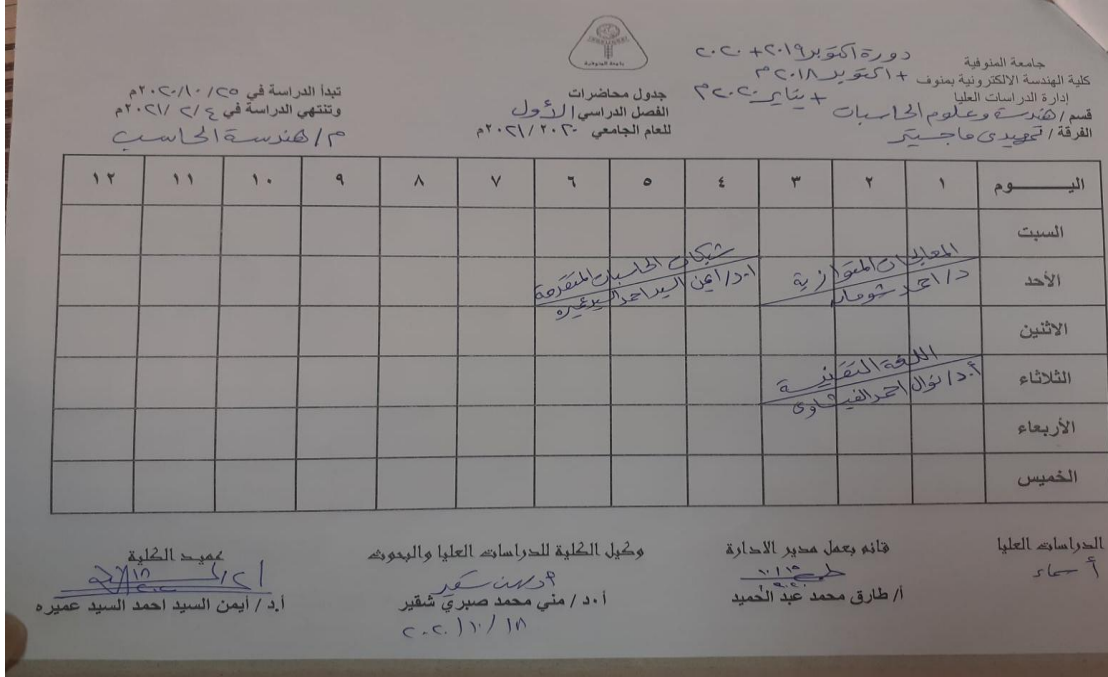 جامعة المنوفية
كلية الهندسة الالكترونية بمنوف
إدارة الدراسات العليا
قسم / هندسة وعلوم الحاسبات
الفرقة / تمهيدى ماجستير
دورة أكتوبر ٢٠١٩ + ٢٠٢٠
+ اكتوبر ٢٠١٨ م
+ يناير ٢٠٢٠ م
جدول محاضرات
الفصل الدراسي الأول
للعام الجامعي ٢٠٢٠ / ٢٠٢١م
تبدأ الدراسة في ٢٥ /١٠ /٢٠٢٠م
وتنتهي الدراسة في ٤ /٢ /٢٠٢١م
م / هندسة الحاسب
اليـــوم ١ ٢ ٣ ٤ ٥ ٦ ٧ ٨ ٩ ١٠ ١١ ١٢
السبت
الأحد
المعالجات المتوازية
د / احمد شومان
شبكات الحاسبات المتقدمة
ا.د / ايمن السيد احمد السيد عميره
الاثنين
الثلاثاء
اللغة التقنية
أ.د / نوال احمد الفيشاوى
الأربعاء
الخميس
الدراسات العليا
أسماء
قائم بعمل مدير الادارة
أ/ طارق محمد عبد الحميد
وكيل الكلية للدراسات العليا والبحوث
أ.د / مني محمد صبري شقير
٢٠٢٠/١٠/١٨
عميد الكلية
أ.د / أيمن السيد احمد السيد عميره